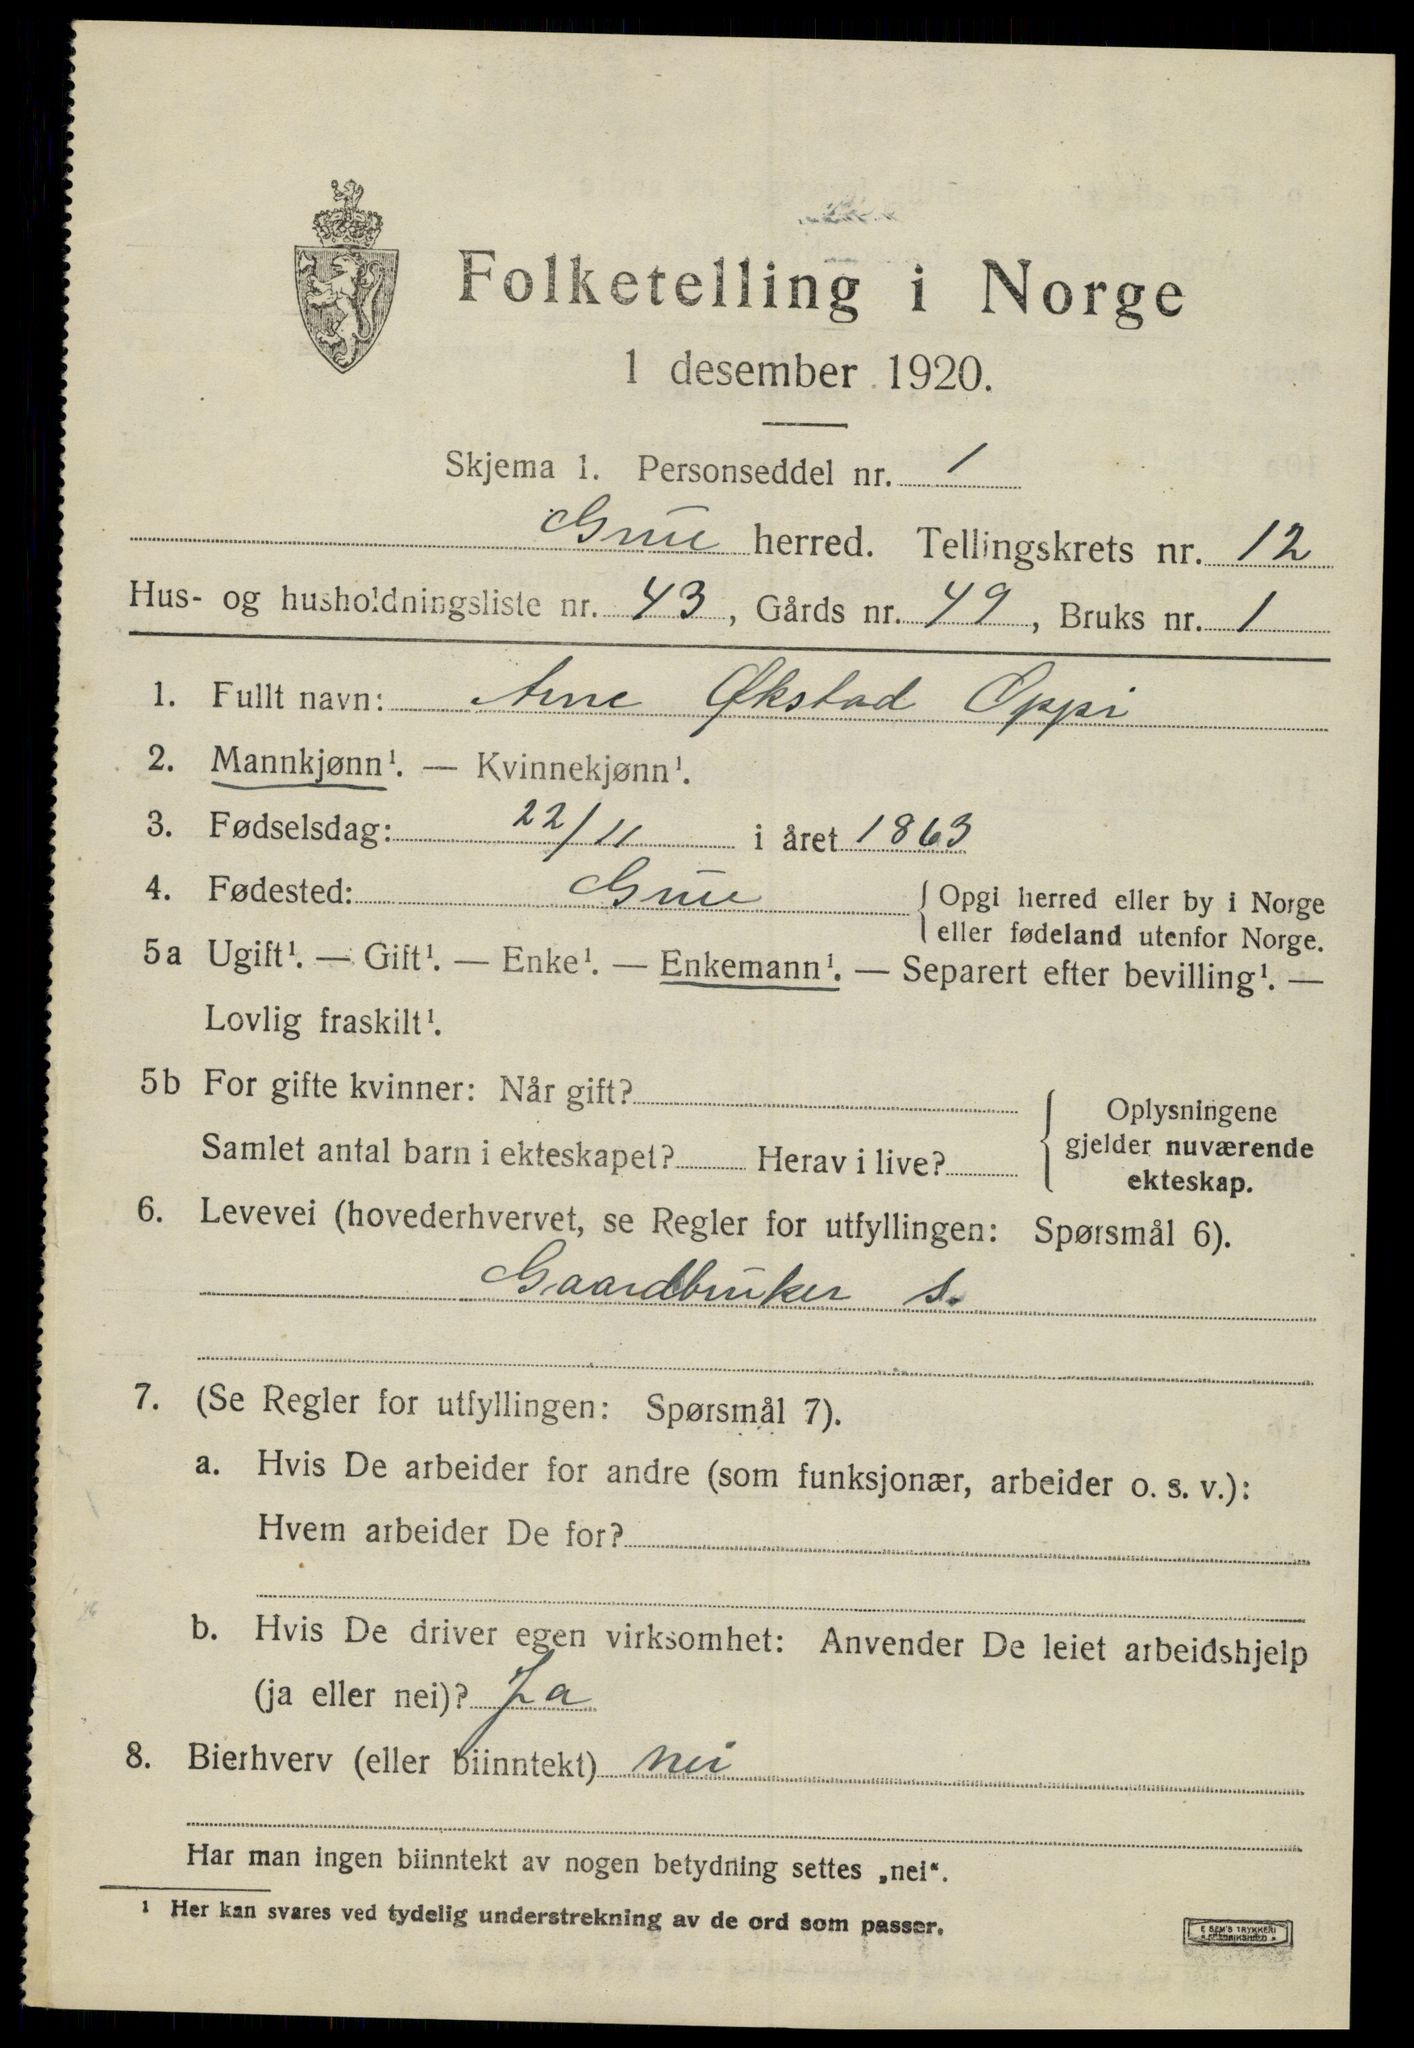 Folketelling i Norge
1 desember 1920.
Skjema 1. Personseddel nr. 1
Grue herred. Tellingskrets nr. 12
Hus- og husholdningsliste nr. 43, Gårds nr. 49, Bruks nr. 1
1. Fullt navn: Arne Økstad Oppi
2. Mannkjønn¹. — Kvinnekjønn¹.
3. Fødselsdag: 22/11 i året 1863
4. Fødested: Grue { Opgi herred eller by i Norge
eller fødeland utenfor Norge.
5a Ugift¹. — Gift¹. — Enke¹. — Enkemann¹. — Separert efter bevilling¹. —
Lovlig fraskilt¹.
5b For gifte kvinner: Når gift?
Samlet antal barn i ekteskapet? Herav i live?
{ Oplysningene
gjelder nuværende
ekteskap.
6. Levevei (hovederhvervet, se Regler for utfyllingen: Spørsmål 6).
Gaardbruker s.
7. (Se Regler for utfyllingen: Spørsmål 7).
a. Hvis De arbeider for andre (som funksjonær, arbeider o. s. v.):
Hvem arbeider De for?
b. Hvis De driver egen virksomhet: Anvender De leiet arbeidshjelp
(ja eller nei)? Ja
8. Bierhverv (eller biinntekt) nei
Har man ingen biinntekt av nogen betydning settes „nei“.
¹ Her kan svares ved tydelig understrekning av de ord som passer.
E SEM'S TRYKKERI
FREDRIKSHALD